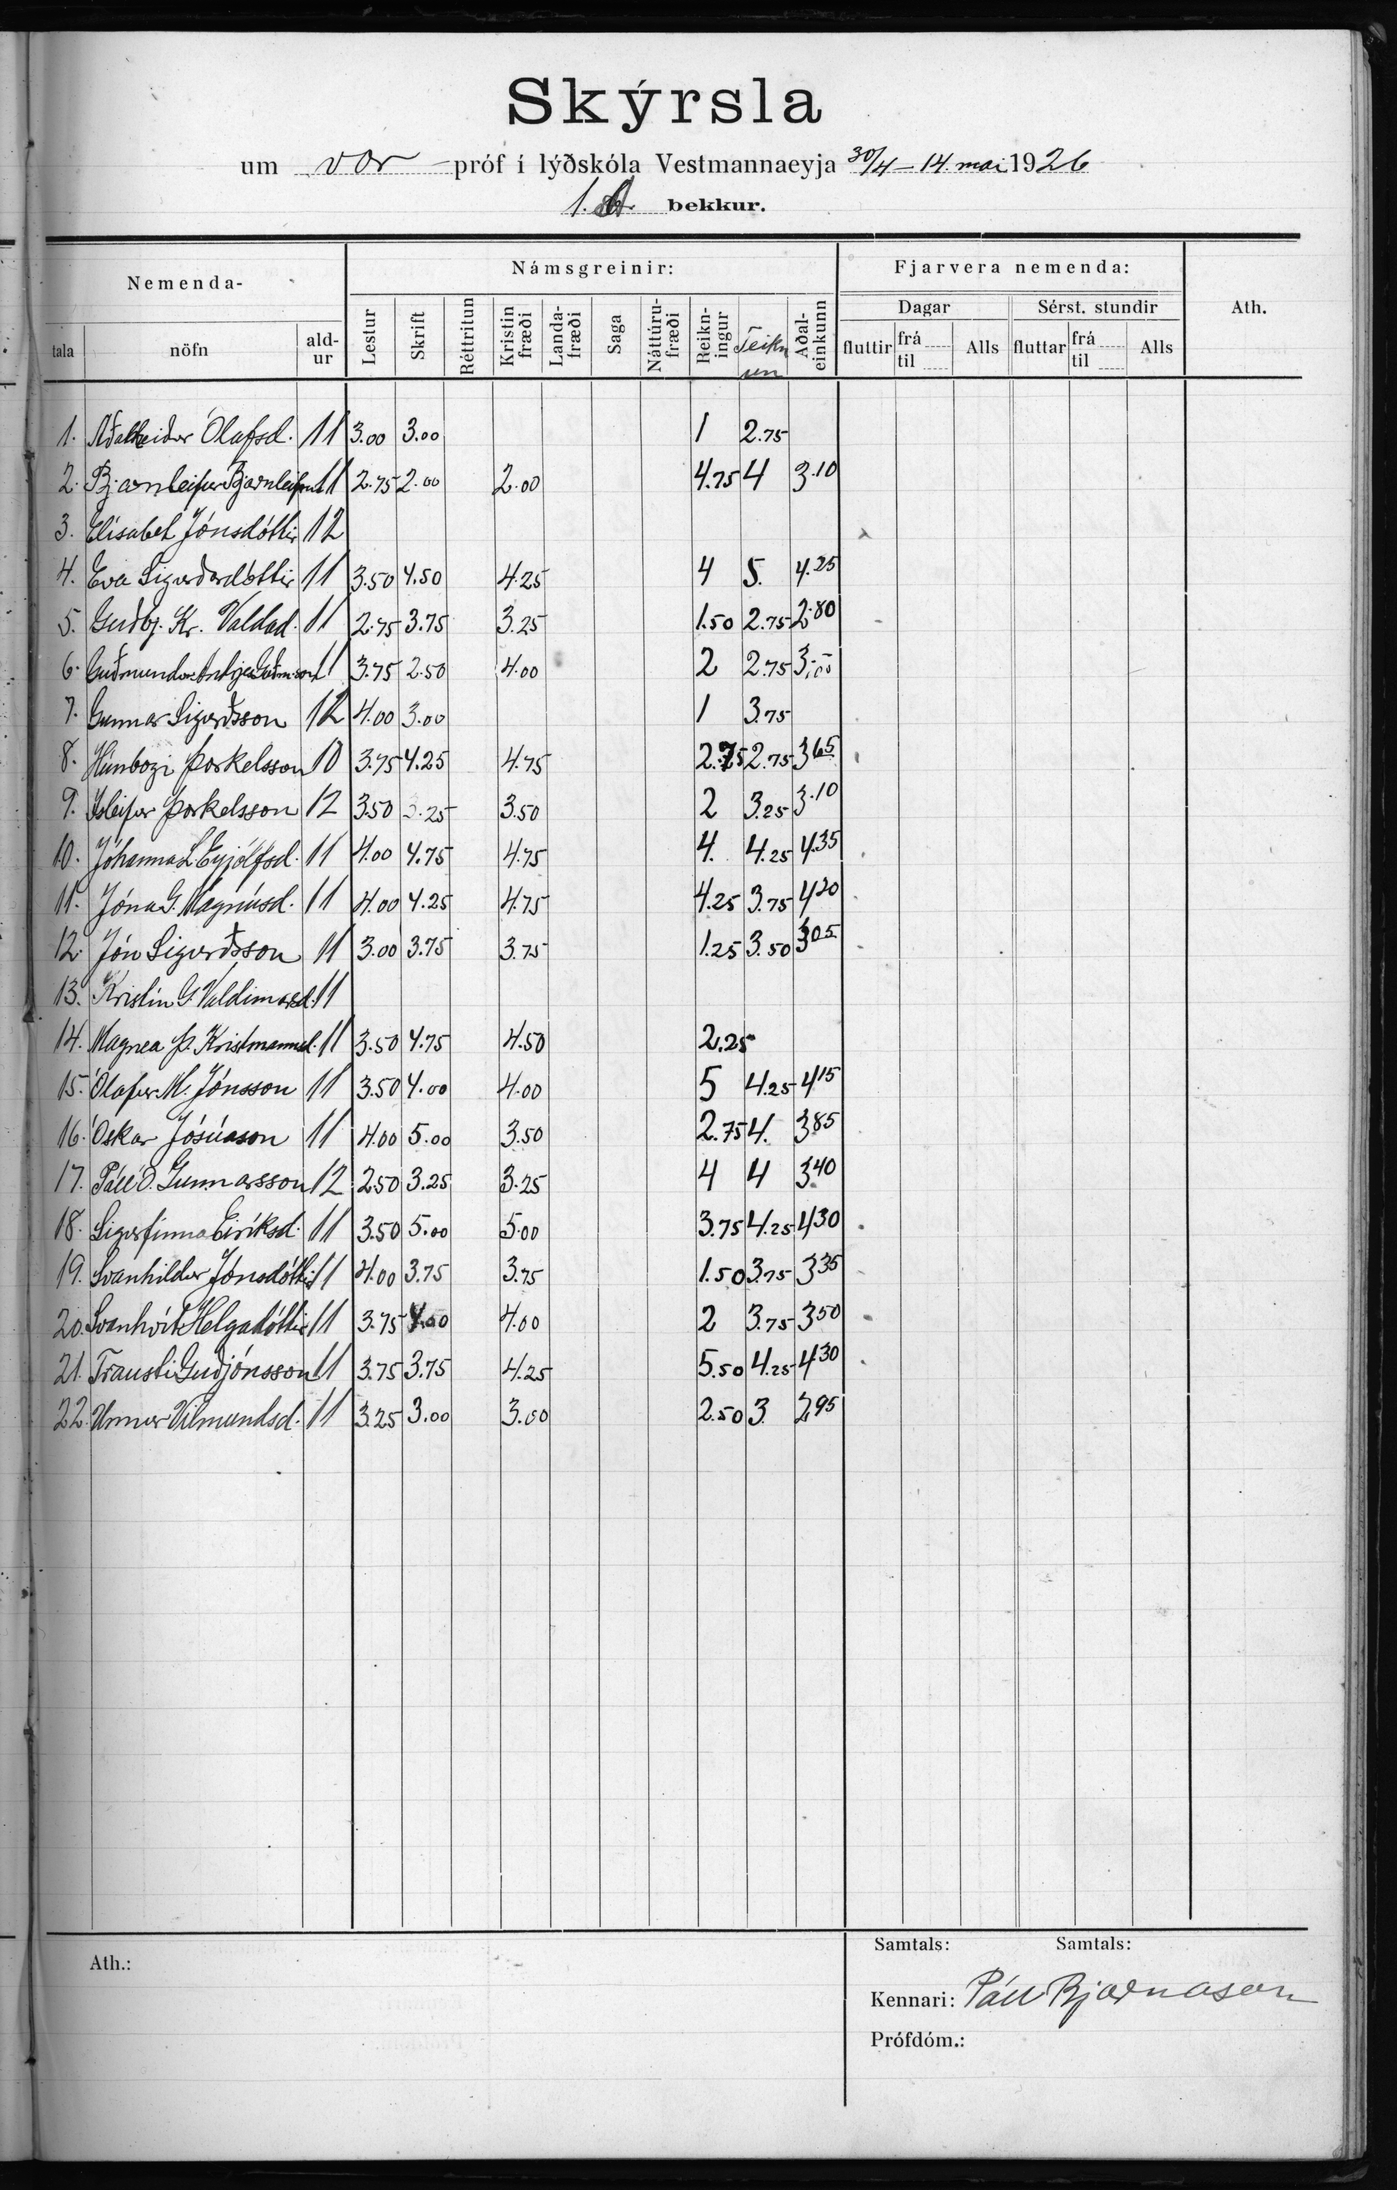 Skýrsla
um vor -próf í lýðskóla Vestmannaeyja 30/4-14. mai 1926
1. bekkur.
Nemenda- Námsgreinir: Fjarvera nemenda: Ath.
Dagar Sérst. stundir
tala nöfn ald-ur Lestur Skrift Réttritun Kristin fræði Landa-fræði Saga Náttúru-fræði Reikn-ingur Teikn un Aðal-einkunn fluttir frá til Alls fluttar frá til Alls
1. Aðalheiður Ólafsd. 11 3.00 3.00 1 2.75
2. Bjarnleifur Bjarnleifsson 11 2.75 2.00 2.00 4.75 4 3.10
3. Elísabet Jónsdóttir 12
4. Eva Sigurðardóttir 11 3.50 4.50 4.25 4 5. 4.25
5. Guðbj. Kr. Valdad. 11 2.75 3.75 3.25 1.50 2.75 2.80
6. Guðmundur Guðm.son 11 3.75 2.50 4.00 2 2.75 3.00
7. Gunnar Sigurðsson 12 4.00 3.00 1 3.75
8. Húnbogi Þorkelsson 10 3.75 4.25 4.75 2.75 2.75 3.65
9. Ísleifur Þorkelsson 12 3.50 3.25 3.50 2 3.25 3.10
10. Jóhanna L. Eyjólfsd. 11 4.00 4.75 4.75 4. 4.25 4.35
11. Jóna G. Magnúsd. 11 4.00 4.25 4.75 4.25 3.75 4.20
12. Jón Sigurðsson 11 3.00 3.75 3.75 1.25 3.50 3.05
13. Kristín G. Valdimarsd. 11
14. Magnea Þ. Kristmannsd. 11 3.50 4.75 4.50 2.25
15. Ólafur M. Jónsson 11 3.50 4.00 4.00 5 4.25 4.15
16. Óskar Jósúason 11 4.00 5.00 3.50 2.75 4. 3.85
17. Páll O. Gunnarsson 12 2.50 3.25 3.25 4 4 3.40
18. Sigurfinna Eiríksd. 11 3.50 5.00 5.00 3.75 4.25 4.30
19. Svanhildur Jónsdóttir 11 4.00 3.75 3.75 1.50 3.75 3.35
20. Svanhvít Helgadóttir 11 3.75 4.00 4.00 2 3.75 3.50
21. Trausti Guðjónsson 11 3.75 3.75 4.25 5.50 4.25 4.30
22. Unnur Vilmundsd. 11 3.25 3.00 3.00 2.50 3 2.95
Ath.:
Samtals: Samtals:
Kennari: Páll Bjarnason
Prófdóm.: